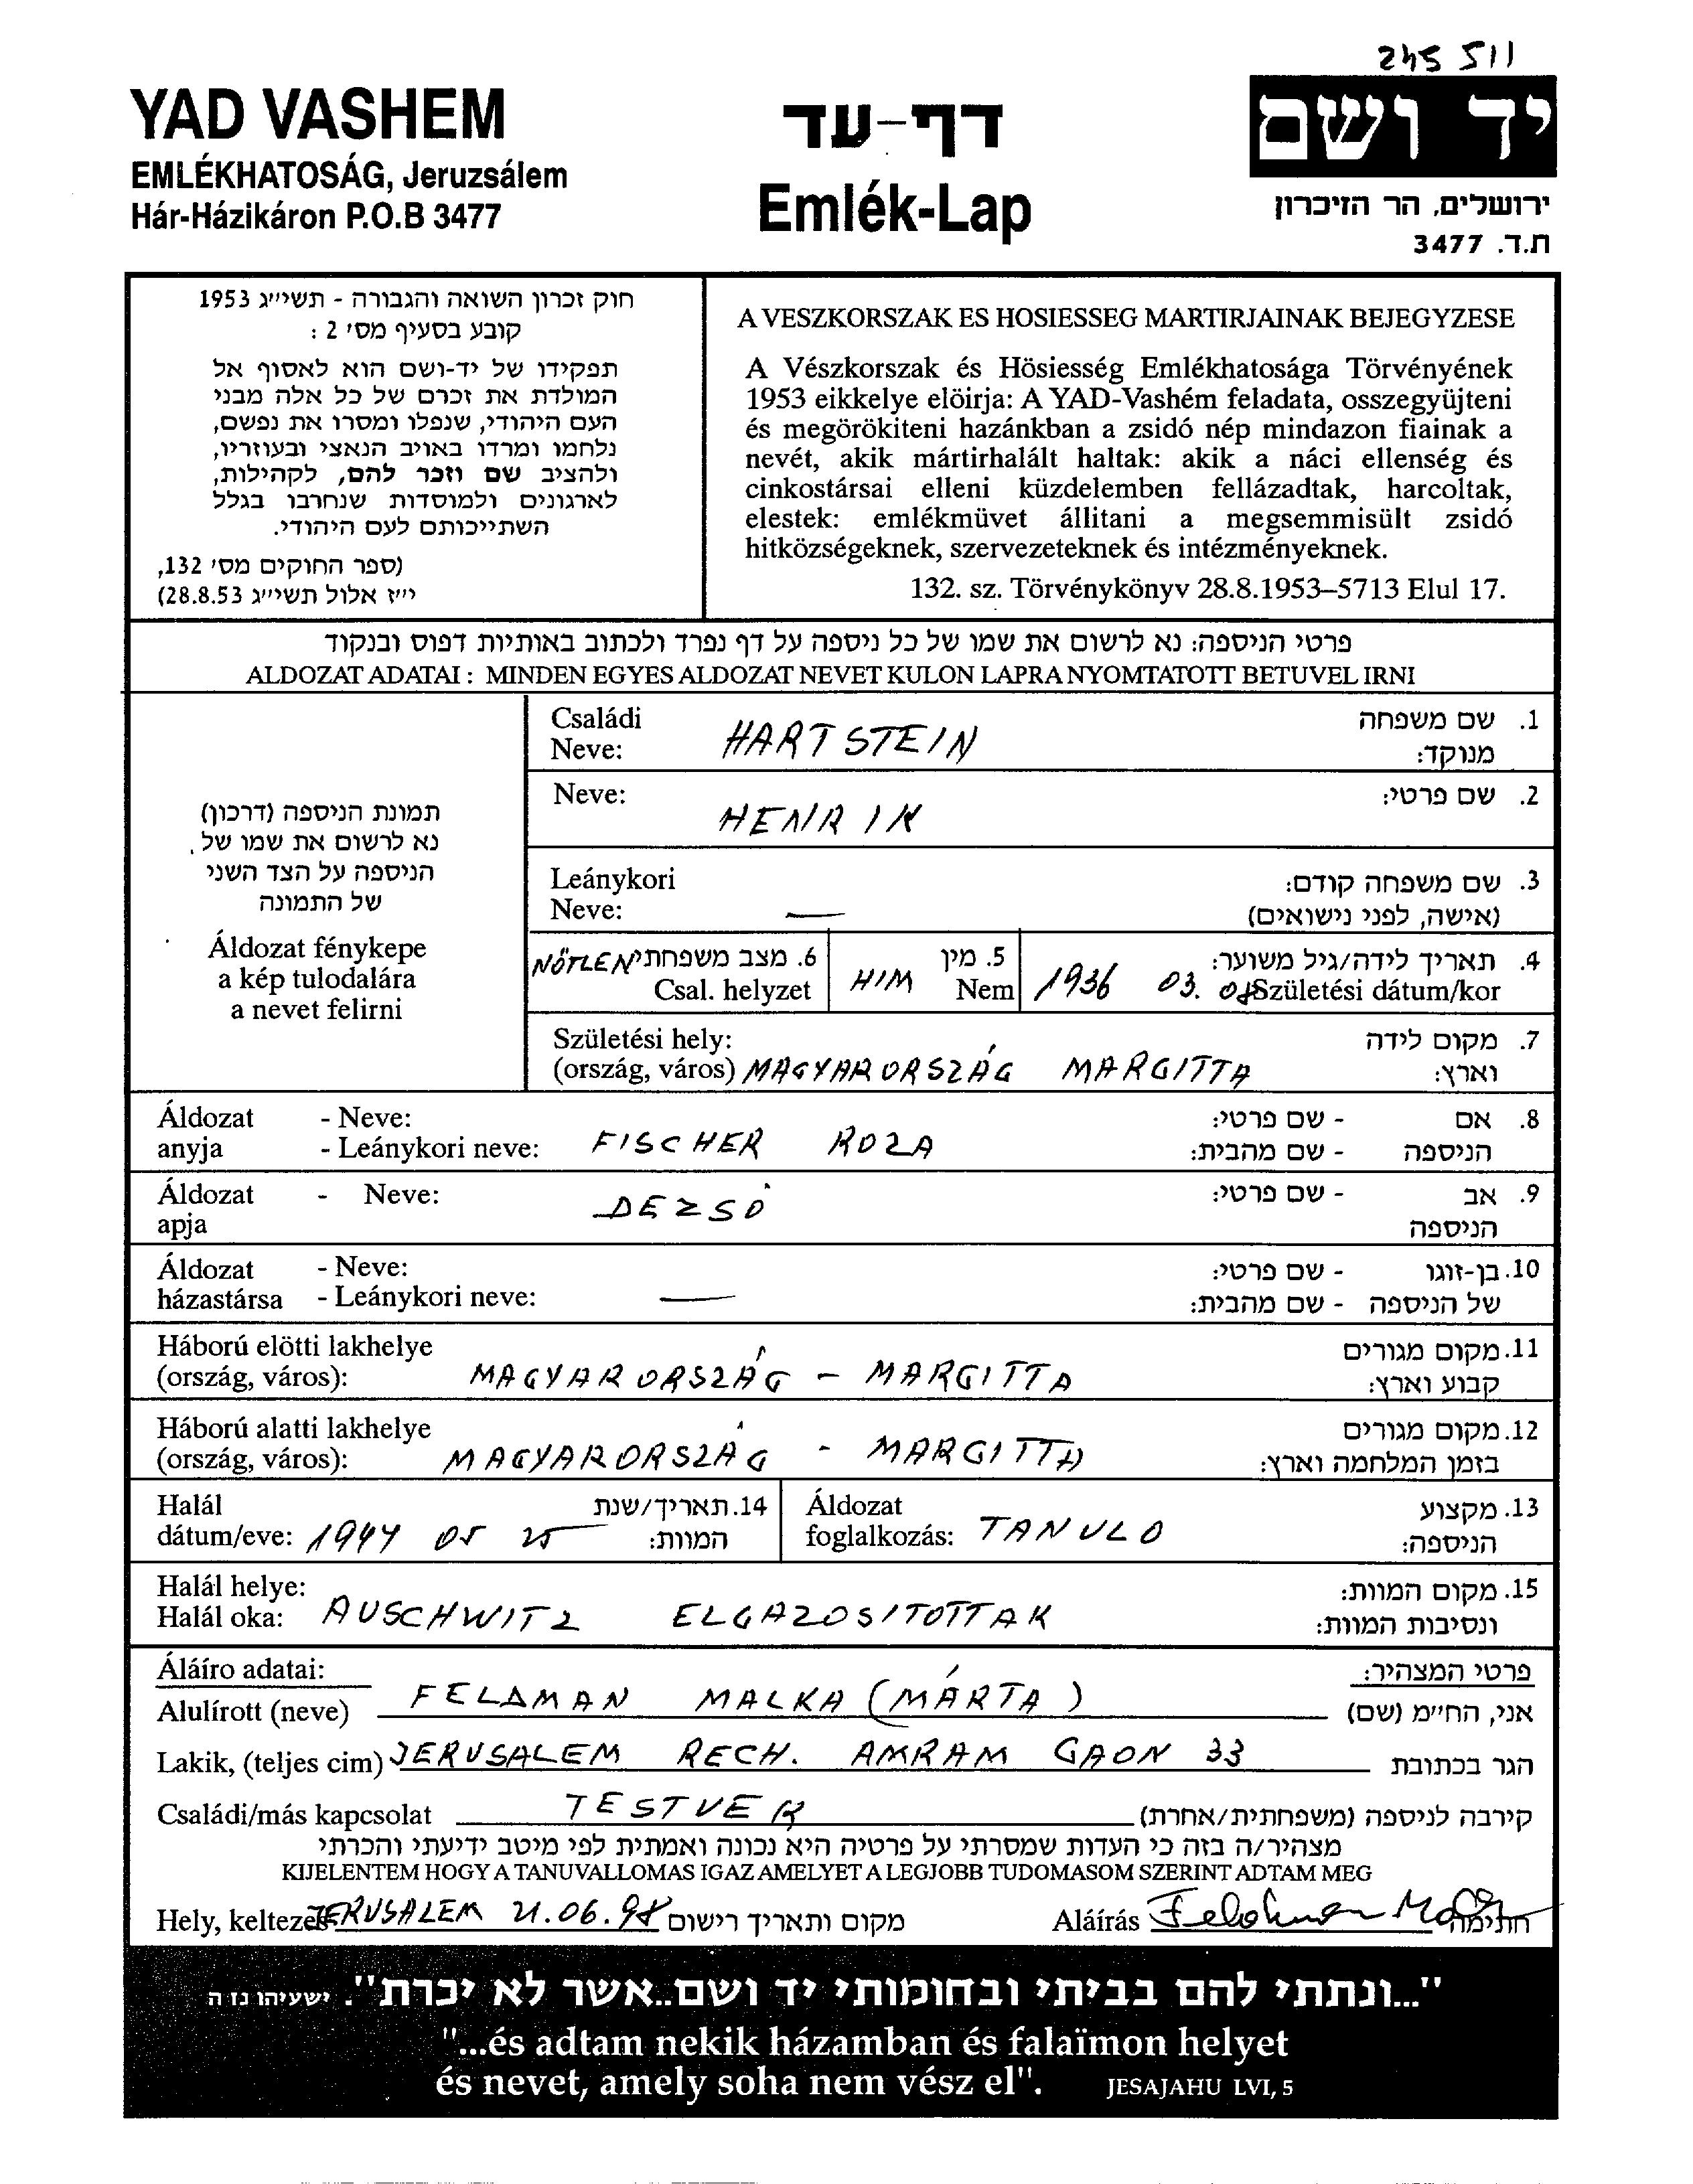 245 511
YAD VASHEM
EMLÉKHATOSÁG, Jeruzsálem
Hár-Házikáron P.O.B 3477
דף-עד
Emlék-Lap
יד ושם
ירושלים, הר הזיכרון
ת.ד. 3477
חוק זכרון השואה והגבורה - תשי״ג 1953
קובע בסעיף מס׳ 2 :
תפקידו של יד-ושם הוא לאסוף אל
המולדת את זכרם של כל אלה מבני
העם היהודי, שנפלו ומסרו את נפשם,
נלחמו ומרדו באויב הנאצי ובעוזריו,
ולהציב שם וזכר להם, לקהילות,
לארגונים ולמוסדות שנחרבו בגלל
השתייכותם לעם היהודי.
(ספר החוקים מס׳ 132,
י״ז אלול תשי״ג 28.8.53)
A VESZKORSZAK ES HOSIESSEG MARTIRJAINAK BEJEGYZESE
A Vészkorszak és Hösiesség Emlékhatosága Törvényének
1953 eikkelye elöirja: A YAD-Vashém feladata, osszegyüjteni
és megörökiteni hazánkban a zsidó nép mindazon fiainak a
nevét, akik mártirhalált haltak: akik a náci ellenség és
cinkostársai elleni küzdelemben fellázadtak, harcoltak,
elestek: emlékmüvet állitani a megsemmisült zsidó
hitközségeknek, szervezeteknek és intézményeknek.
132. sz. Törvénykönyv 28.8.1953–5713 Elul 17.
פרטי הניספה: נא לרשום את שמו של כל ניספה על דף נפרד ולכתוב באותיות דפוס ובנקוד
ALDOZAT ADATAI : MINDEN EGYES ALDOZAT NEVET KULON LAPRA NYOMTATOTT BETUVEL IRNI
תמונת הניספה (דרכון)
נא לרשום את שמו של
הניספה על הצד השני
של התמונה
Áldozat fénykepe
a kép tulodalára
a nevet felirni
Családi
Neve: HARTSTEIN
1. שם משפחה
מנוקד:
Neve: HENRIK 2. שם פרטי:
Leánykori
Neve: —
3. שם משפחה קודם:
(אישה, לפני נישואים)
NŐTLEN 6. מצב משפחתי
Csal. helyzet
HIM 5. מין
Nem
4. תאריך לידה/גיל משוער:
1936 03. Születési dátum/kor
Születési hely:
(ország, város) MAGYARORSZÁG MARGITTA
7. מקום לידה
וארץ:
Áldozat - Neve:
anyja - Leánykori neve: FISCHER ROZA
8. אם - שם פרטי:
הניספה - שם מהבית:
Áldozat - Neve: DEZSÓ
apja
9. אב - שם פרטי:
הניספה
Áldozat - Neve:
házastársa - Leánykori neve: —
10. בן-זוגו - שם פרטי:
של הניספה - שם מהבית:
Háború elötti lakhelye
(ország, város): MAGYARORSZÁG - MARGITTA
11. מקום מגורים
קבוע וארץ:
Háború alatti lakhelye
(ország, város): MAGYARORSZÁG - MARGITTA
12. מקום מגורים
בזמן המלחמה וארץ:
Halál
dátum/eve: 1944 05 25
14. תאריך/שנת
המוות:
Áldozat
foglalkozás: TANULO
13. מקצוע
הניספה:
Halál helye:
Halál oka: AUSCHWITZ ELGAZOSITOTTAK
15. מקום המוות:
ונסיבות המוות:
Áláíro adatai: פרטי המצהיר:
Alulírott (neve) FELDMAN MALKA (MÁRTA) אני, הח״מ (שם)
Lakik, (teljes cim) JERUSALEM RECH. AMRAM GAON 33 הגר בכתובת
Családi/más kapcsolat TESTVER קירבה לניספה (משפחתית/אחרת)
מצהיר/ה בזה כי העדות שמסרתי על פרטיה היא נכונה ואמתית לפי מיטב ידיעתי והכרתי
KIJELENTEM HOGY A TANUVALLOMAS IGAZ AMELYET A LEGJOBB TUDOMASOM SZERINT ADTAM MEG
Hely, keltezés JERUSALEM 21.06.98 מקום ותאריך רישום Aláírás Feldman Malka חתימה
"...ונתתי להם בביתי ובחומותי יד ושם..אשר לא יכרת". ישעיהו נז ה
"...és adtam nekik házamban és falaïmon helyet
és nevet, amely soha nem vész el". JESAJAHU LVI, 5